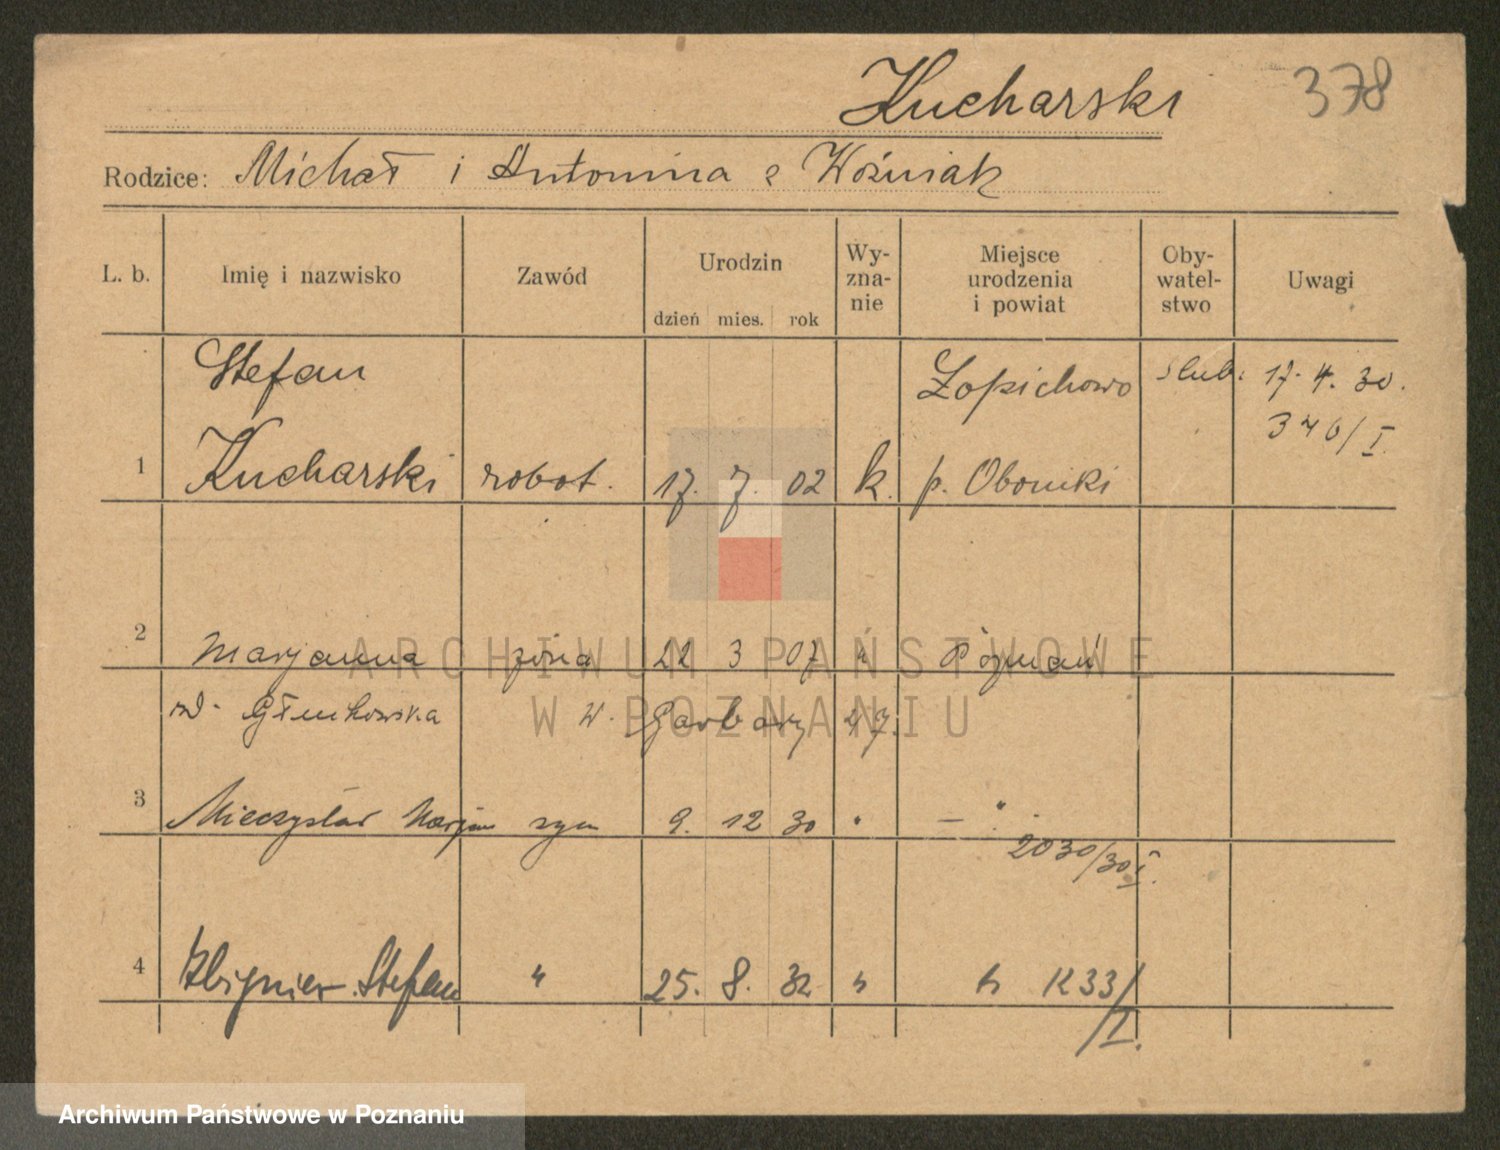 Kucharski 378
Rodzice: Michał i Antonina z Woźniak
L. b. Imię i nazwisko Zawód Urodzin dzień mies. rok Wy-zna-nie Miejsce urodzenia i powiat Oby-watel-stwo Uwagi
Stefan Łopichowo ślub. 17. 4. 30.
376/I.
1 Kucharski robot. 17. 7. 02 k. p. Oborniki
2 Marjanna żona 22 3 07 " Poznań
W. Garbary 27.
3 Mieczysław Marjan syn 9. 12 30 " — " .
2030/30 I.
4 Zbigniew Stefan " 25. 8. 32 " " 1233/
/I.
ARCHIWUM PAŃSTWOWE
W POZNANIU
Archiwum Państwowe w Poznaniu